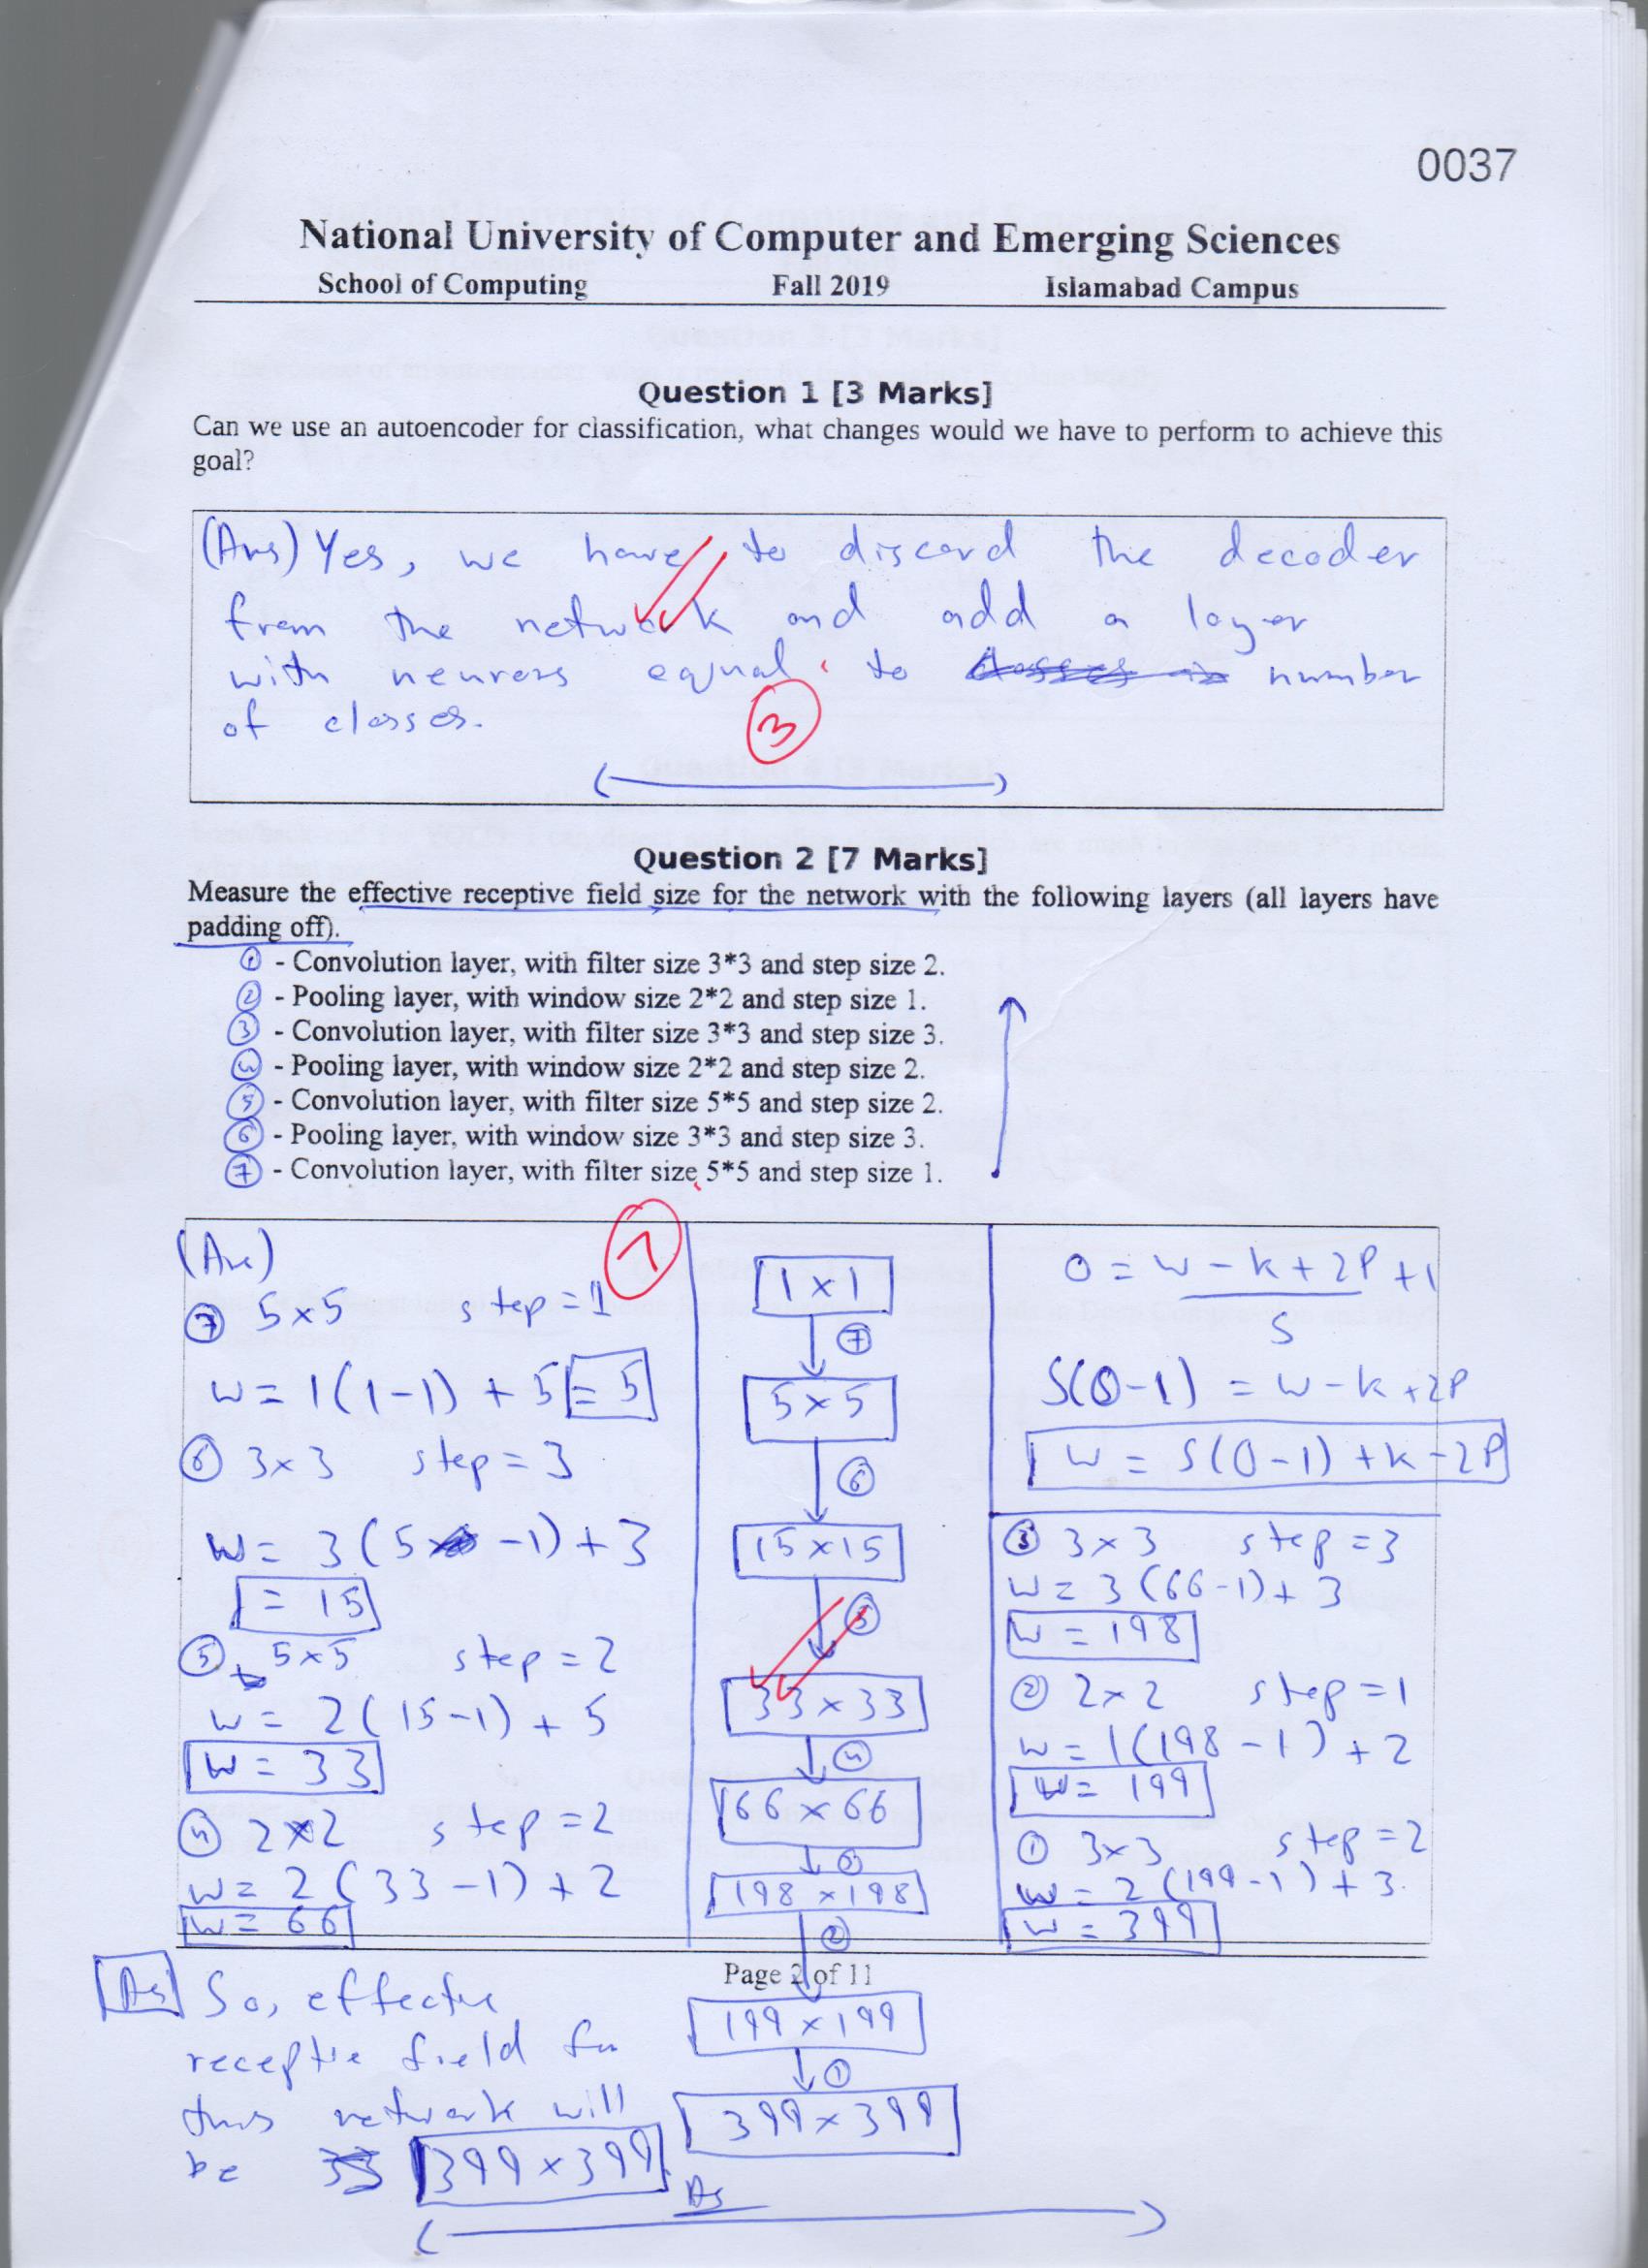 0037
National University of Computer and Emerging Sciences
School of Computing Fall 2019 Islamabad Campus
Question 1 [3 Marks]
Can we use an autoencoder for classification, what changes would we have to perform to achieve this
goal?
(Ans) Yes, we have to discard the decoder
from the network and add a layer
with neurons equal to number
of classes.
3
Question 2 [7 Marks]
Measure the effective receptive field size for the network with the following layers (all layers have
padding off).
① - Convolution layer, with filter size 3*3 and step size 2.
② - Pooling layer, with window size 2*2 and step size 1.
③ - Convolution layer, with filter size 3*3 and step size 3.
④ - Pooling layer, with window size 2*2 and step size 2.
⑤ - Convolution layer, with filter size 5*5 and step size 2.
⑥ - Pooling layer, with window size 3*3 and step size 3.
⑦ - Convolution layer, with filter size 5*5 and step size 1.
7
(Ans)
⑦ 5×5 step=1
w = 1(1-1) + 5 = 5
⑥ 3×3 step = 3
w = 3(5-1)+3
= 15
⑤ 5×5 step = 2
w = 2(15-1) + 5
w = 33
④ 2×2 step = 2
w = 2(33-1)+2
w = 66
1×1
⑦
5×5
⑥
15×15
⑤
33×33
④
66×66
③
198×198
②
199×199
①
399×399
O = w-k+2P +1
S
S(O-1) = w-k+2P
w = S(O-1)+k-2P
③ 3×3 step = 3
w = 3(66-1)+3
w = 198
② 2×2 step = 1
w = 1(198-1)+2
w = 199
① 3×3 step = 2
w = 2(199-1)+3
w = 399
Page 2 of 11
As So, effective
receptive field for
this network will
be 399×399
As